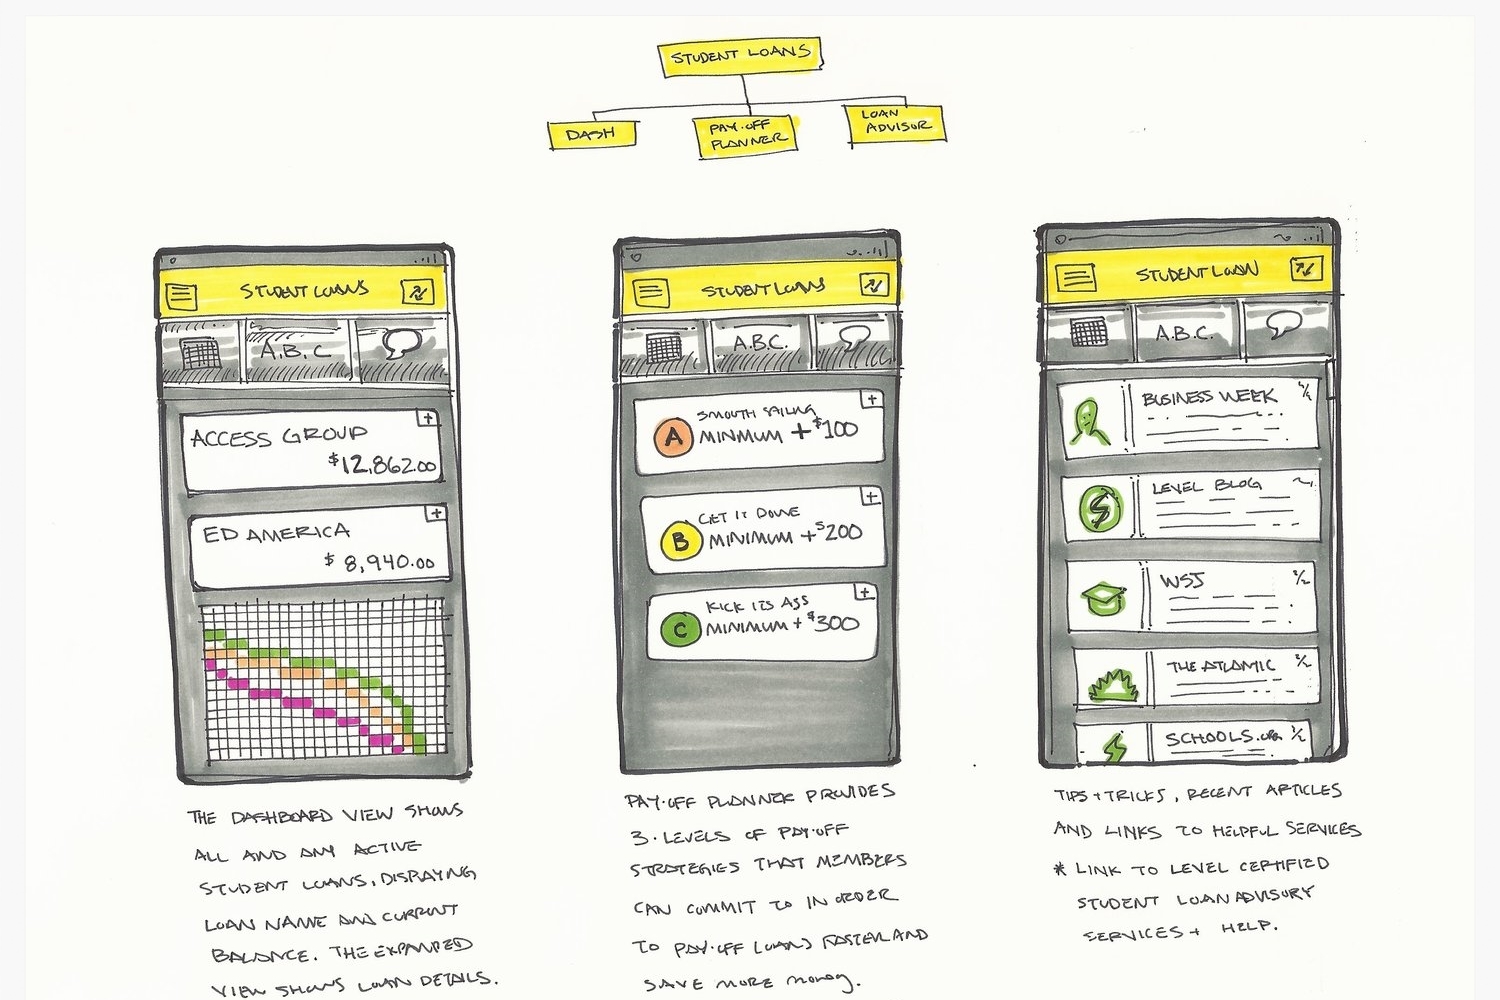 STUDENT LOANS
DASH
PAY·OFF
PLANNER
LOAN
ADVISOR
STUDENT LOANS
A.B.C
ACCESS GROUP
$12,862.00
ED AMERICA
$ 8,940.00
THE DASHBOARD VIEW SHOWS
ALL AND ANY ACTIVE
STUDENT LOANS, DISPLAYING
LOAN NAME AND CURRENT
BALANCE. THE EXPANDED
VIEW SHOWS LOAN DETAILS.
STUDENT LOANS
A.B.C.
A
SMOOTH SAILING
MINMUM + $100
B
GET IT DONE
MINIMUM + $200
C
KICK ITS ASS
MINIMUM + $300
PAY·OFF PLANNER PROVIDES
3·LEVELS OF PAY·OFF
STRATEGIES THAT MEMBERS
CAN COMMIT TO IN ORDER
TO PAY·OFF LOANS FASTER AND
SAVE MORE MONEY.
STUDENT LOAN
A.B.C.
BUSINESS WEEK
LEVEL BLOG
WSJ
THE ATLANTIC
SCHOOLS.ORG
TIPS + TRICKS, RECENT ARTICLES
AND LINKS TO HELPFUL SERVICES
* LINK TO LEVEL CERTIFIED
STUDENT LOAN ADVISORY
SERVICES + HELP.